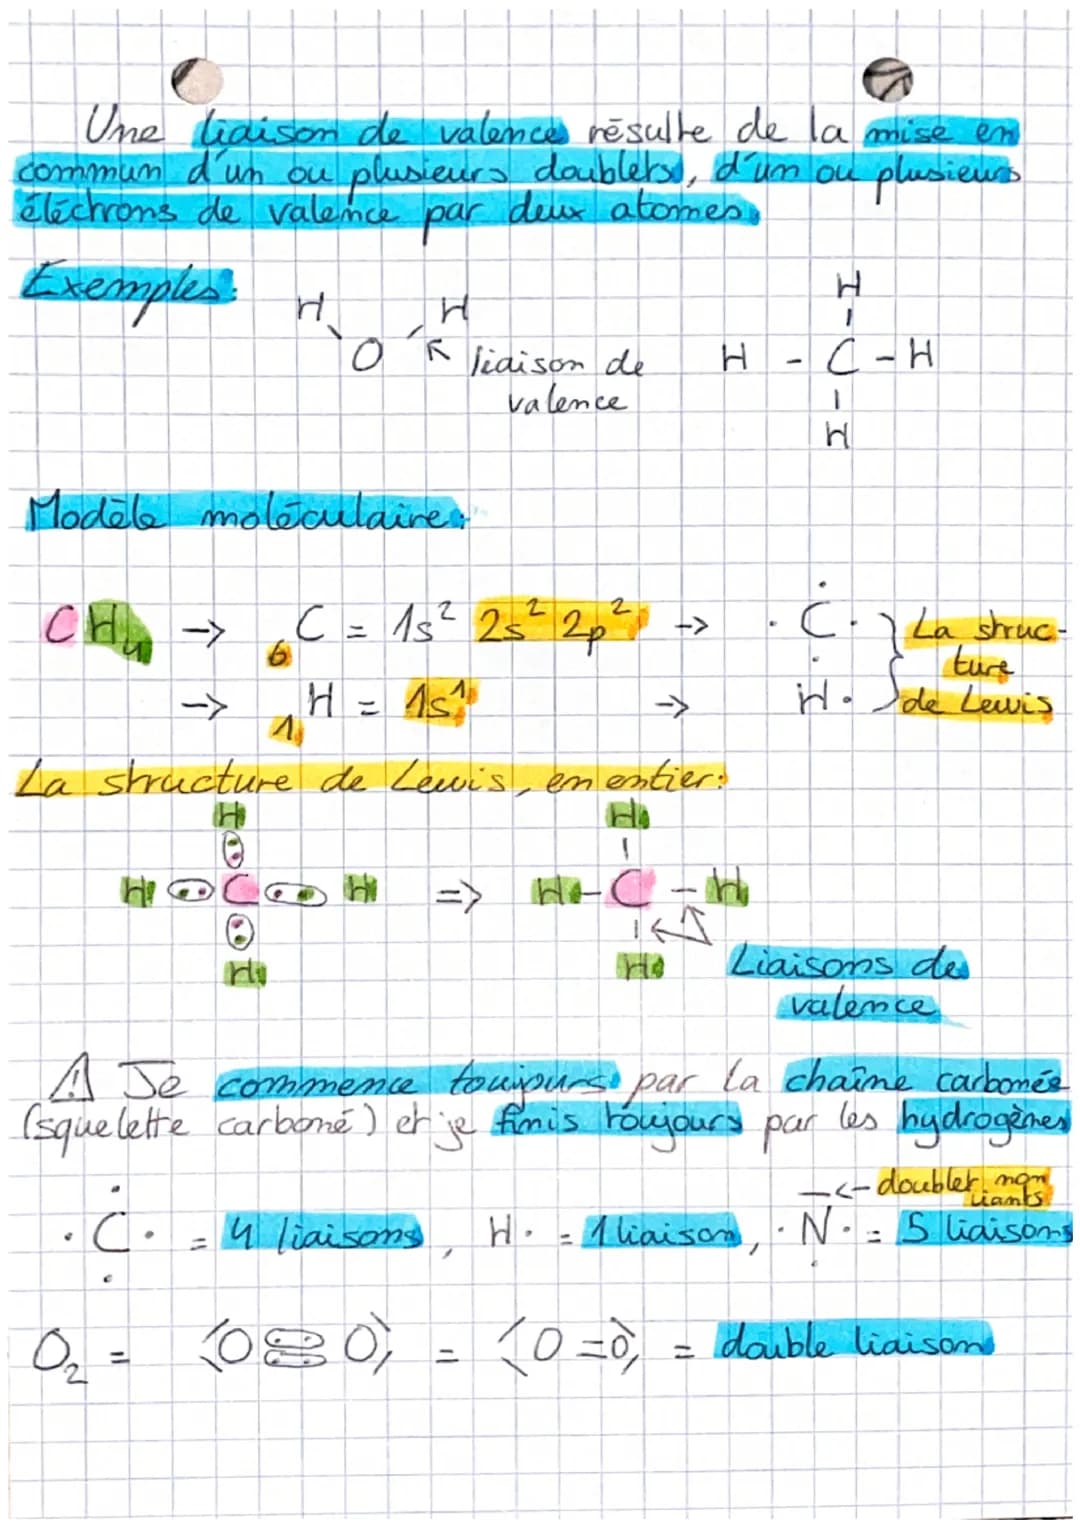 Une liaison de valence résulte de la mise en
commun d'un ou plusieurs doublets, d'un ou plusieurs
éléchrons de valence par deux atomes.
Exemples:
H H
O liaison de
valence
H
H - C - H
H
Modèle moléculaire:
CH4 -> 6C = 1s² 2s² 2p² -> · C · La struc-
ture
-> 1H = 1s¹ -> H · de Lewis
La structure de Lewis, en entier:
H H
H C H => H - C - H
H H
Liaisons de
valence
⚠ Je commence toujours par la chaîne carbonée
(squelette carboné) et je finis toujours par les hydrogènes
<- doublet non
liants
· C · = 4 liaisons, H · = 1 liaison, · N · = 5 liaisons
O2 = ⟨O O⟩ = ⟨O=O⟩ = double liaison